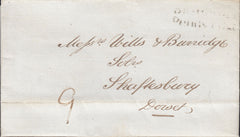 Messrs Wills & Burridge
Solrs
Shaftesbury
Dorset
9